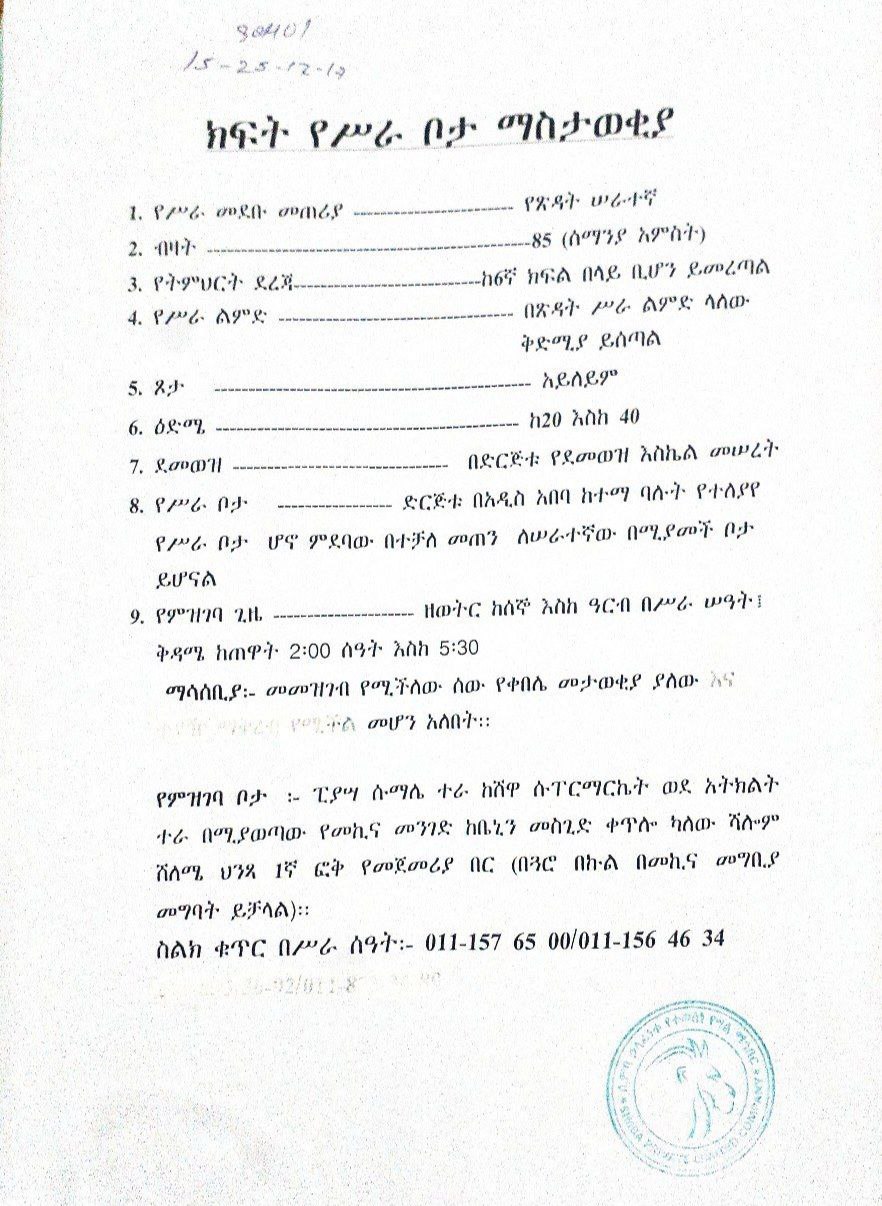 15-25-12-17
ክፍት የሥራ ቦታ ማስታወቂያ
1. የሥራ መደቡ መጠሪያ ---------------------------- የጽዳት ሠራተኛ
2. ብዛት -------------------------------------------------------85 (ሰማንያ አምስት)
3. የትምህርት ደረጃ---------------------------------ከ6ኛ ክፍል በላይ ቢሆን ይመረጣል
4. የሥራ ልምድ ----------------------------------------- በጽዳት ሥራ ልምድ ላለው
ቅድሚያ ይሰጣል
5. ጾታ ------------------------------------------------------- አይለይም
6. ዕድሜ ---------------------------------------------------- ከ20 እስከ 40
7. ደመወዝ ------------------------------------- በድርጅቱ የደመወዝ እስኬል መሠረት
8. የሥራ ቦታ -------------------- ድርጅቱ በአዲስ አበባ ከተማ ባሉት የተለያየ
የሥራ ቦታ ሆኖ ምደባው በተቻለ መጠን ለሠራተኛው በሚያመች ቦታ
ይሆናል
9. የምዝገባ ጊዜ ------------------------ ዘወትር ከሰኞ እስከ ዓርብ በሥራ ሠዓት፤
ቅዳሜ ከጠዋት 2:00 ሰዓት እስከ 5:30
ማሳሰቢያ፡- መመዝገብ የሚችለው ሰው የቀበሌ መታወቂያ ያለው እና
የሚችል መሆን አለበት፡፡
የምዝገባ ቦታ ፡- ፒያሣ ሱማሌ ተራ ከሸዋ ሱፐርማርኬት ወደ አትክልት
ተራ በሚያወጣው የመኪና መንገድ ከቤኒን መስጊድ ቀጥሎ ካለው ሻሎም
ሸለሜ ህንጻ 1ኛ ፎቅ የመጀመሪያ በር (በጓሮ በኩል በመኪና መግቢያ
መግባት ይቻላል)፡፡
ስልክ ቁጥር በሥራ ሰዓት፡- 011-157 65 00/011-156 46 34